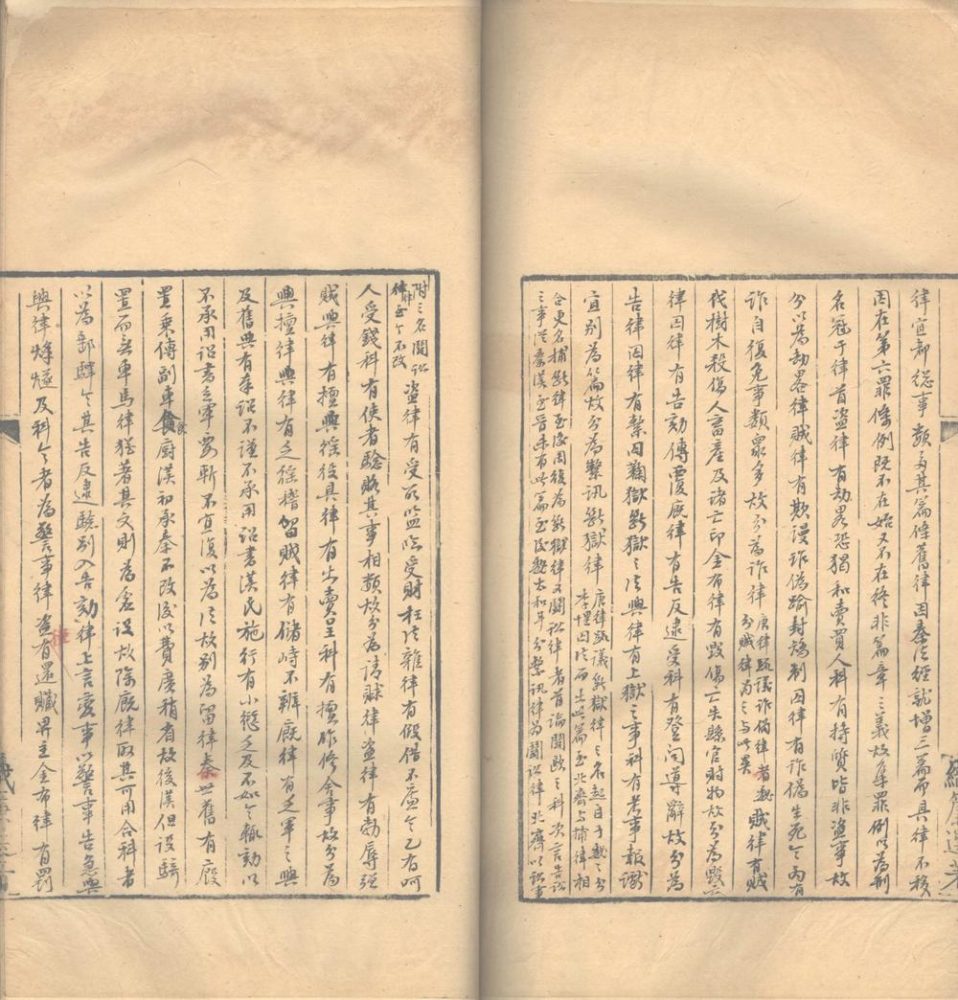 律宜都總事類多其篇條舊律因秦法經就增三篇而具律不移
因在第六罪條例既不在始又不在終非篇章之義故集罪例以為刑
名冠于律首盜律有劫畧恐猲和賣買人科有持質皆非盜事故
分以為劫畧律賊律有欺謾詐偽踰封矯制囚律有詐偽生死令丙有
詐自復免事類眾多故分為詐律 唐律疏議詐偽律者魏分賊律為之与此異 賊律有賊
伐樹木殺傷人畜產及諸亡印金布律有毀傷亡失縣官財物故分為毀亡
律囚律有告劾傳覆廄律有告反逮受科有登聞道辭故分為
告律囚律有繫囚鞫獄斷獄之法興律有上獄之事科有考事報讞
宜別為篇故分為繫訊斷獄律 唐律疏議斷獄律之名起自于魏魏分李悝囚法而出此篇至北齊与捕律相
合更名捕斷律至後周復為斷獄律又鬭訟律者首論鬭毆之科次言告訟
之事從秦漢至晉未有此篇至後魏太和年分繫訊律為鬭訟律北齊以訟事
附之名鬭訟律至今不改 盜律有受所監臨受財枉法雜律有假借不廉令乙有呵
人受錢科有使者驗賂其事相類故分為請賕律盜律有勃辱強
賊興律有擅興徭役具律有出賣呈科有擅作修舍事故分為
興擅律興律有乏徭稽留賊律有儲峙不辦廄律有乏軍之興
及舊典有奉詔不謹不承用詔書漢氏施行有小愆乏及不如令輒劾以
不承用詔書乏軍要斬不宜復以為法故別為留律秦世舊有廄
置乘傳副車食廚漢初承秦不改後以費廣稍省故後漢但設騎
置而無車馬律猶著其文則為虛設故除廄律取其可用合科者
以為郵驛令其告反逮驗別入告劾律上言變事以驚事告急與
興律烽燧及科令者為驚事律盜有還贓畀主金布律有罰